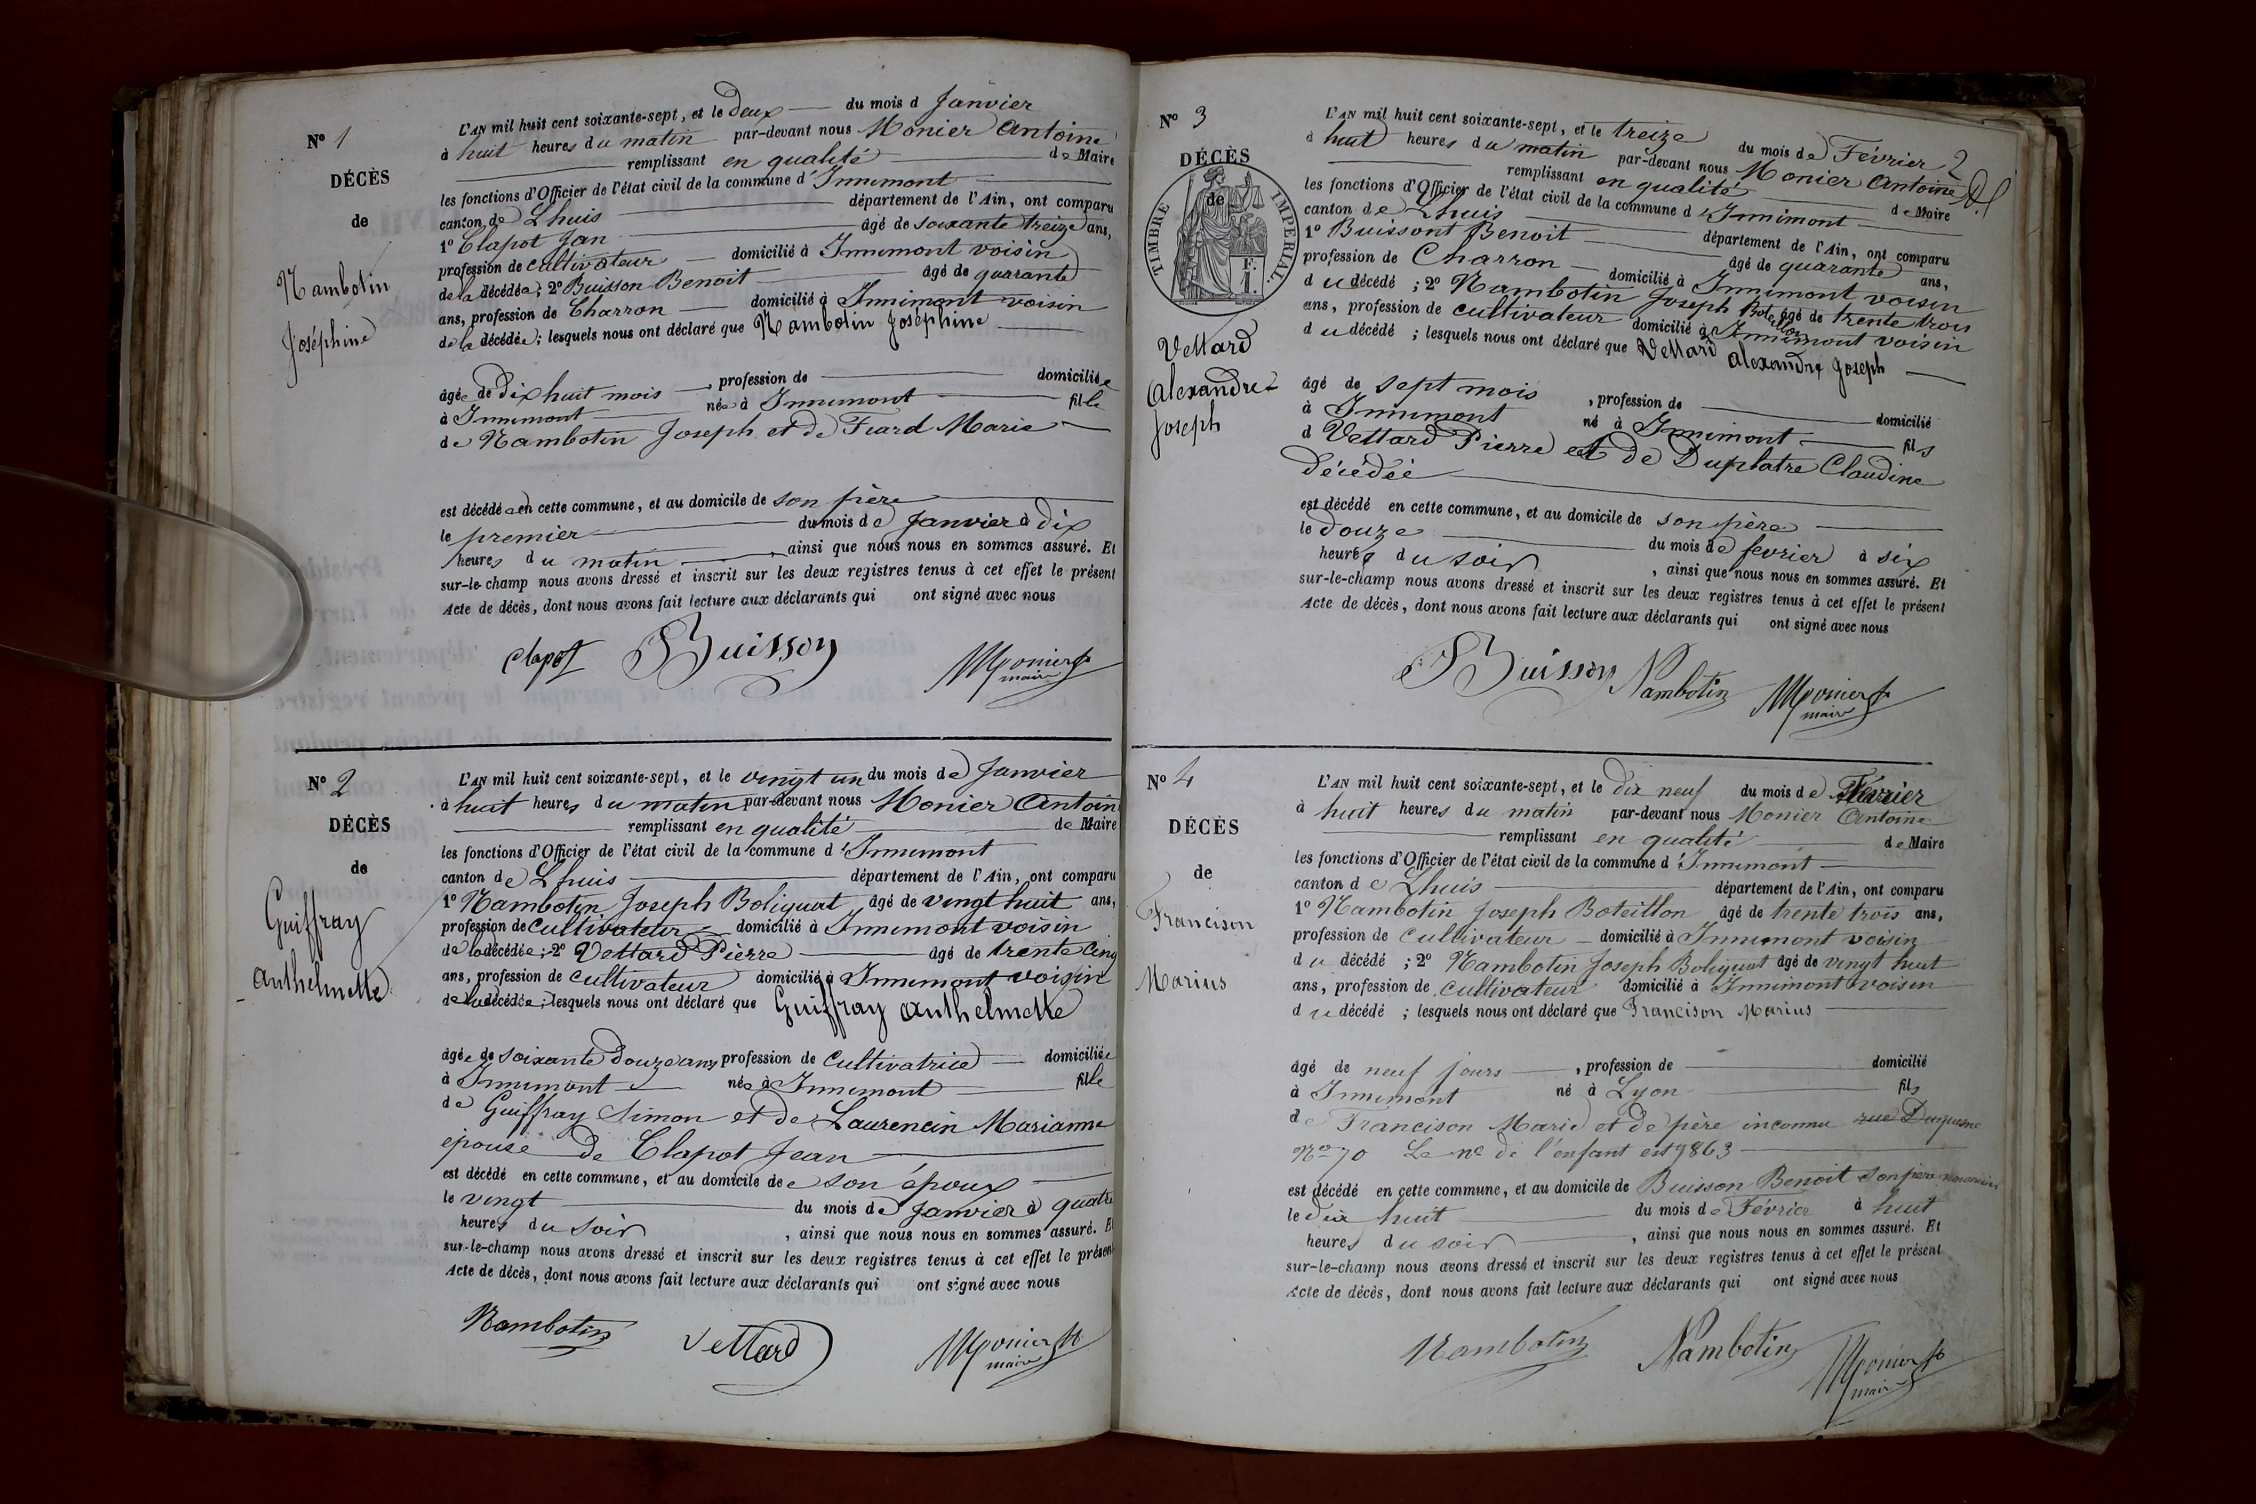 N° 1
DÉCÈS
de
Nambotin
Joséphine
L'AN mil huit cent soixante-sept, et le Deux du mois d Janvier
à huit heures du matin par-devant nous Monier Antoine
remplissant en qualité de Maire
les fonctions d'Officier de l'état civil de la commune d'Innimont
canton de Lhuis département de l'Ain, ont comparu
1° Clapot Jan âgé de soixante treize ans,
profession de cultivateur domicilié à Innimont voisin
de la décédée ; 2° Buisson Benoit âgé de quarante
ans, profession de Charron domicilié à Innimont voisin
de la décédée ; lesquels nous ont déclaré que Nambotin Joséphine
âgée de Dix huit mois , profession de domiciliée
à Innimont née à Innimont fille
de Nambotin Joseph et de Fiard Marie
est décédée en cette commune, et au domicile de son père
le premier du mois de Janvier à dix
heures du matin , ainsi que nous nous en sommes assuré. Et
sur-le-champ nous avons dressé et inscrit sur les deux registres tenus à cet effet le présent
Acte de décès, dont nous avons fait lecture aux déclarants qui ont signé avec nous
Clapot Buisson Monier
maire
N° 2
DÉCÈS
de
Guiffray
Anthelmette
L'AN mil huit cent soixante-sept, et le vingt un du mois de Janvier
à huit heures du matin par-devant nous Monier Antoine
remplissant en qualité de Maire
les fonctions d'Officier de l'état civil de la commune d'Innimont
canton de Lhuis département de l'Ain, ont comparu
1° Nambotin Joseph Boliquat âgé de vingt huit ans,
profession de cultivateur domicilié à Innimont voisin
de la décédée ; 2° Vettard Pierre âgé de trente cinq
ans, profession de cultivateur domicilié à Innimont voisin
de la décédée ; lesquels nous ont déclaré que Guiffray Anthelmette
âgée de soixante douze ans profession de cultivatrice domiciliée
à Innimont née à Innimont fille
de Guiffray Simon et de Laurencin Marianne
épouse de Clapot Jean
est décédé en cette commune, et au domicile de son époux
le vingt du mois de Janvier à quatre
heures du soir , ainsi que nous nous en sommes assuré. Et
sur-le-champ nous avons dressé et inscrit sur les deux registres tenus à cet effet le présent
Acte de décès, dont nous avons fait lecture aux déclarants qui ont signé avec nous
Nambotin Vettard Monier
maire
2
N° 3
DÉCÈS
de
TIMBRE IMPÉRIAL
F.
1.
Vettard
Alexandre
Joseph
L'AN mil huit cent soixante-sept, et le treize du mois de Février
à huit heures du matin par-devant nous Monier Antoine
remplissant en qualité de Maire
les fonctions d'Officier de l'état civil de la commune d'Innimont
canton de Lhuis département de l'Ain, ont comparu
1° Buissont Benoit âgé de quarante ans,
profession de Charron domicilié à Innimont voisin
du décédé ; 2° Nambotin Joseph Boteillon âgé de trente trois
ans, profession de cultivateur domicilié à Innimont voisin
du décédé ; lesquels nous ont déclaré que Vettard Alexandre Joseph
âgé de sept mois , profession de domicilié
à Innimont né à Innimont fils
d Vettard Pierre et de Duplatre Claudine
Décédée
est décédé en cette commune, et au domicile de son père
le Douze du mois de fevrier à six
heures du soir , ainsi que nous nous en sommes assuré. Et
sur-le-champ nous avons dressé et inscrit sur les deux registres tenus à cet effet le présent
Acte de décès, dont nous avons fait lecture aux déclarants qui ont signé avec nous
Buisson Nambotin Monier
maire
N° 4
DÉCÈS
de
Francison
Marius
L'AN mil huit cent soixante-sept, et le dix neuf du mois de Février
à huit heures du matin par-devant nous Monier Antoine
remplissant en qualité de Maire
les fonctions d'Officier de l'état civil de la commune d'Innimont
canton de Lhuis département de l'Ain, ont comparu
1° Nambotin Joseph Boteillon âgé de trente trois ans,
profession de cultivateur domicilié à Innimont voisin
du décédé ; 2° Nambotin Joseph Boliquat âgé de vingt huit
ans, profession de cultivateur domicilié à Innimont voisin
du décédé ; lesquels nous ont déclaré que Francison Marius
âgé de neuf jours , profession de domicilié
à Innimont né à Lyon fils
de Francison Marie et de père inconnu rue Duquesne
N° 70 Le n° de l'enfant est 9863
est décédé en cette commune, et au domicile de Buisson Benoit son père nourricier
le dix huit du mois de Février à huit
heures du soir , ainsi que nous nous en sommes assuré. Et
sur-le-champ nous avons dressé et inscrit sur les deux registres tenus à cet effet le présent
Acte de décès, dont nous avons fait lecture aux déclarants qui ont signé avec nous
Nambotin Nambotin Monier
maire